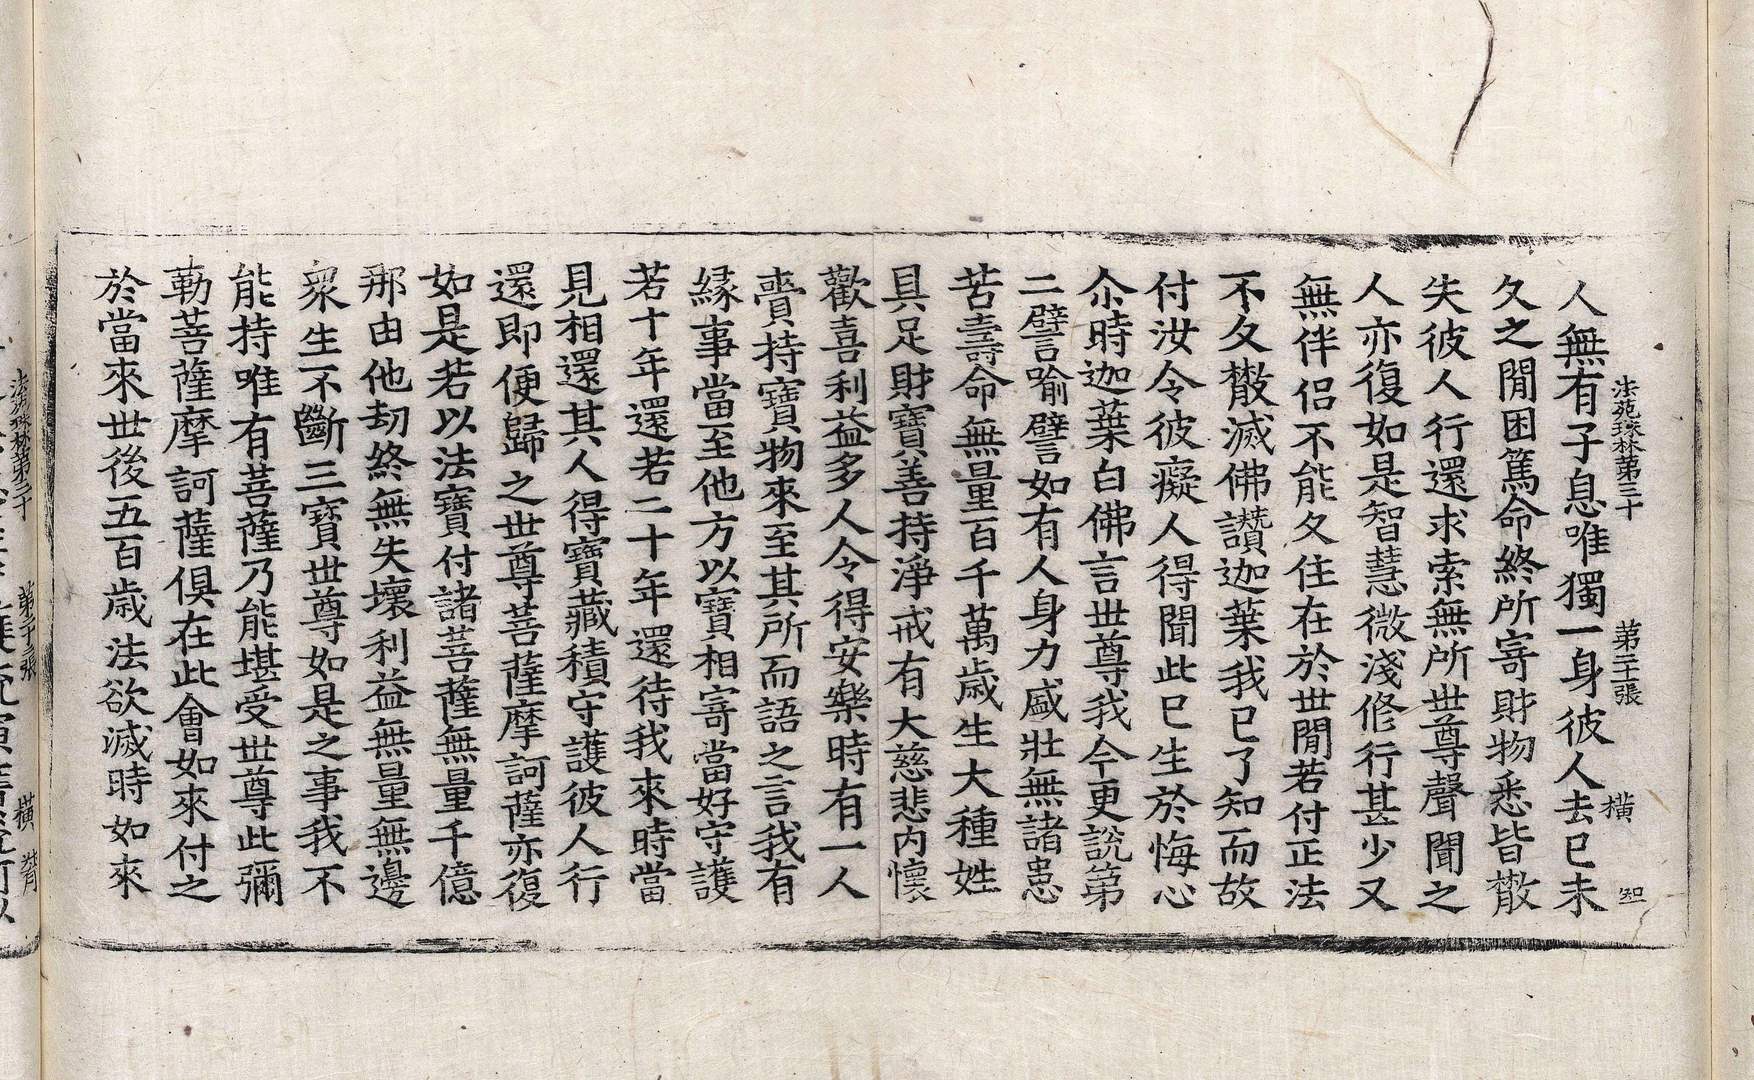 法苑珠林第三十 第二十張 橫
人無有子息唯獨一身彼人去已未
久之閒困篤命終所寄財物悉皆散
失彼人行還求索無所世尊聲聞之
人亦復如是智慧微淺修行甚少又
無伴侣不能久住在於世閒若付正法
不久散滅佛讚迦葉我已了知而故
付汝令彼癡人得聞此已生於悔心
尒時迦葉白佛言世尊我今更說第
二譬喻譬如有人身力盛壯無諸患
苦壽命無量百千萬歲生大種姓
具足財寶善持淨戒有大慈悲内懷
歡喜利益多人令得安樂時有一人
賷持寶物來至其所而語之言我有
緣事當至他方以寶相寄當好守護
若十年還若二十年還待我來時當
見相還其人得寶藏積守護彼人行
還即便歸之世尊菩薩摩訶薩亦復
如是若以法寶付諸菩薩無量千億
那由他劫終無失壞利益無量無邊
衆生不斷三寶世尊如是之事我不
能持唯有菩薩乃能堪受世尊此彌
勒菩薩摩訶薩俱在此會如來付之
於當來世後五百歲法欲滅時如來
法苑珠林第三十 橫